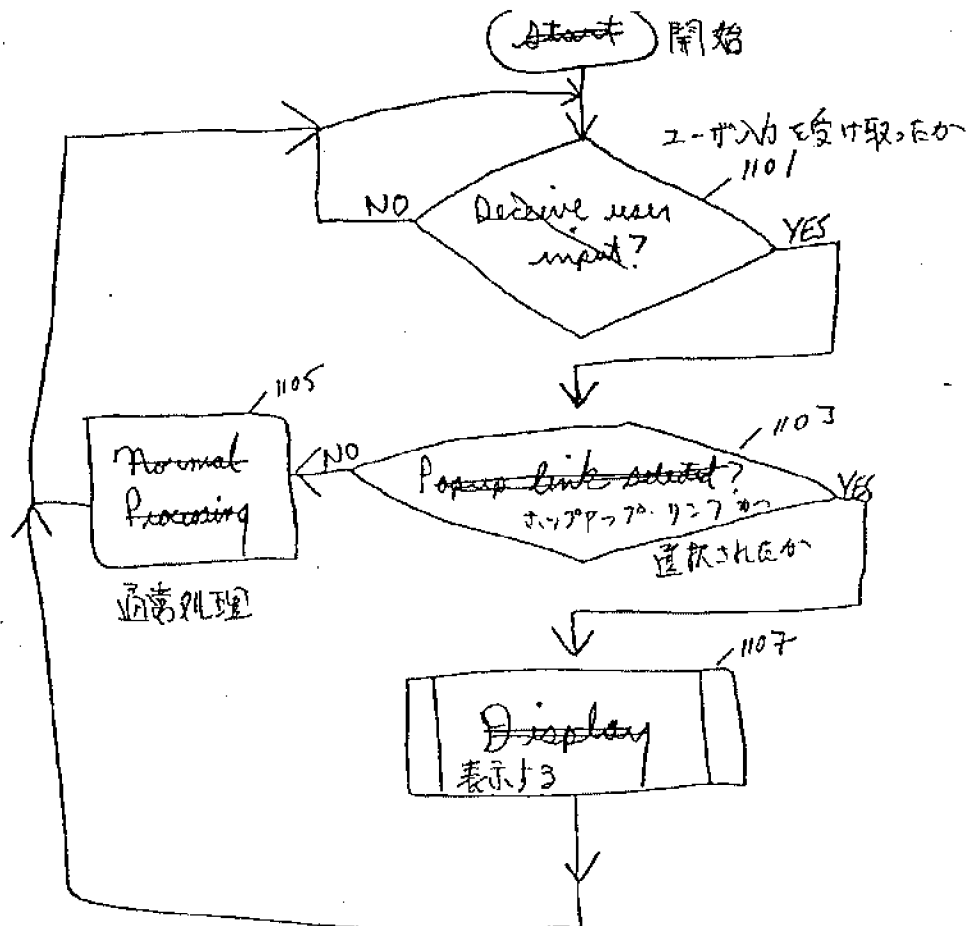 Start 開始
ユーザ入力を受け取ったか
1101
NO
Receive user
input?
YES
1105
Normal
Processing
通常処理
NO
1103
Popup link selected?
YES
ポップアップ・リンクが
選択されたか
1107
Display
表示する